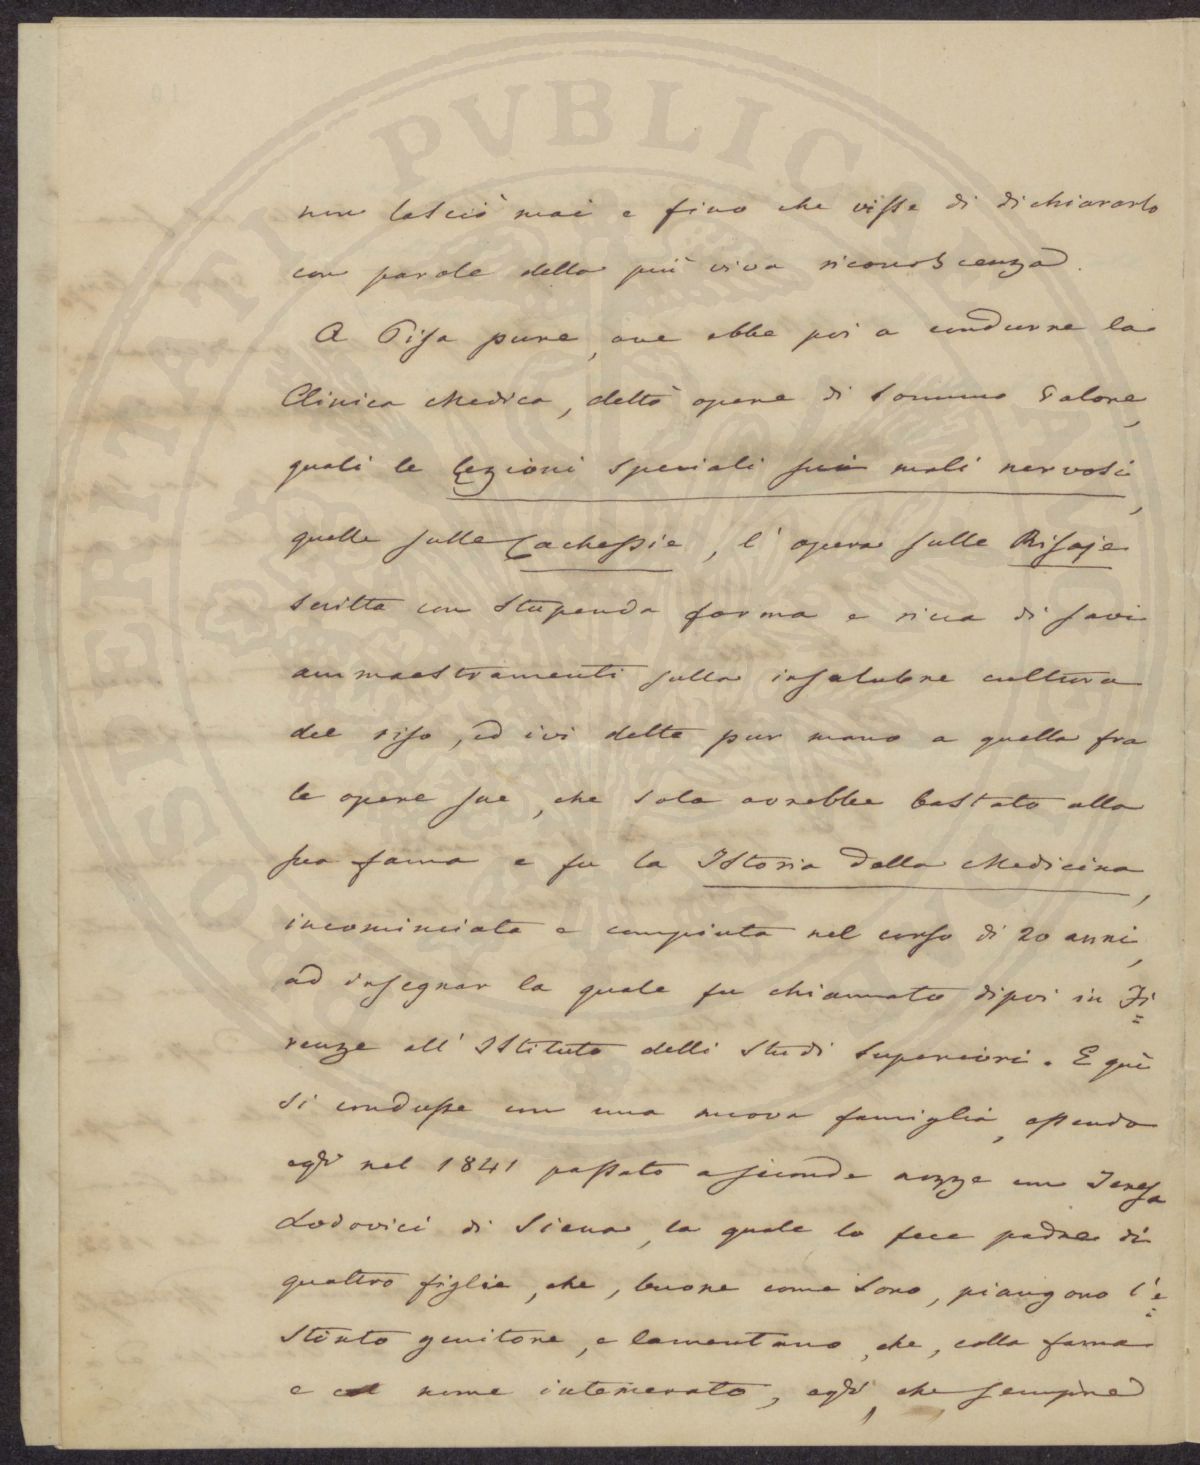 non lasciò mai e fino che visse di dichiararlo
con parole della più viva riconoscenza.
A Pisa pure, ove ebbe poi a condurre la
Clinica Medica, dettò opere di sommo valore,
quali le lezioni speciali sui mali nervosi,
quelle sulle Cachessie, l'opera sulle Risaje
scritta con stupenda forma e ricca di savi
ammaestramenti sulla insalubre cultura
del riso, ed ivi dette pur mano a quella fra
le opere sue, che sola avrebbe bastato alla
sua fama e fu la Istoria della Medicina,
incominciata e compiuta nel corso di 20 anni,
ad insegnar la quale fu chiamato dipoi in Fi=
renze all'Istituto delli Studi Superiori. E quì
si condusse con una nuova famiglia, essendo
egli nel 1841 passato a seconde nozze con Teresa
Lodovici di Siena, la quale lo fece padre di
quattro figlie, che, buone come sono, piangono l'e=
stinto genitore, e lamentano, che, colla fama
e col nome intemerato, egli, che sempre
PVBLICA